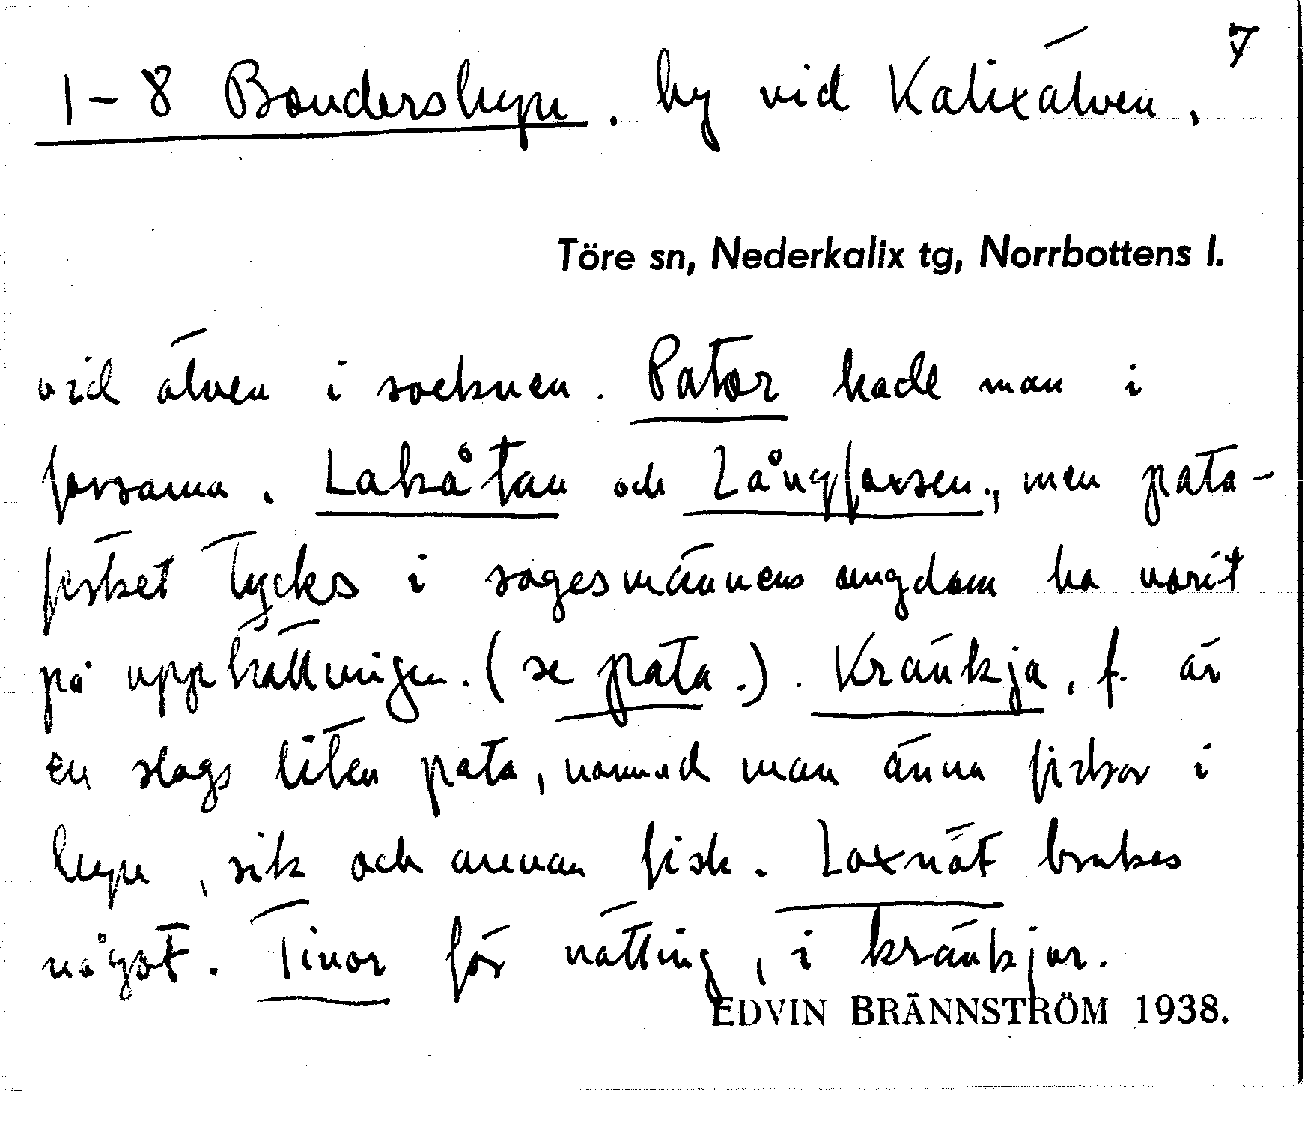 7
1-8 Bondersbyn. by vid Kalixälven.
Töre sn, Nederkalix tg, Norrbottens l.
vid älven i socknen. Pator hade man i
forsarna. Lakåtan och Långforsen., men pata-
fisket tycks i sagesmännens ungdom ha varit
på upphällningen. (se pata.). Kränkja, f. är
en slags liten pata, varmed man ännu fiskar i
byn, sik och annan fisk. Laxnät brukas
något. Tinor för nätting, i kränkjor.
EDVIN BRÄNNSTRÖM 1938.